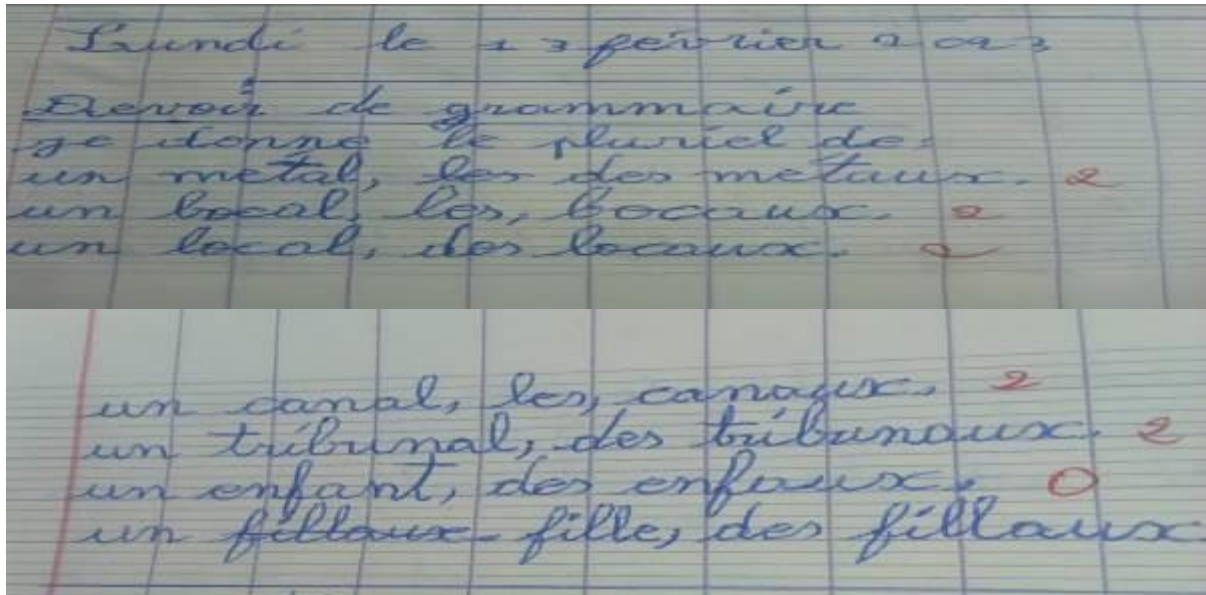 Lundi le 13 février 2023
Devoir de grammaire
je donne le pluriel de:
un métal, les des métaux. 2
un bocal, les, bocaux. 2
un local, des locaux. 2
un canal, les, canaux. 2
un tribunal, des tribunaux. 2
un enfant, des enfaux. 0
un fillaux fille, des fillaux